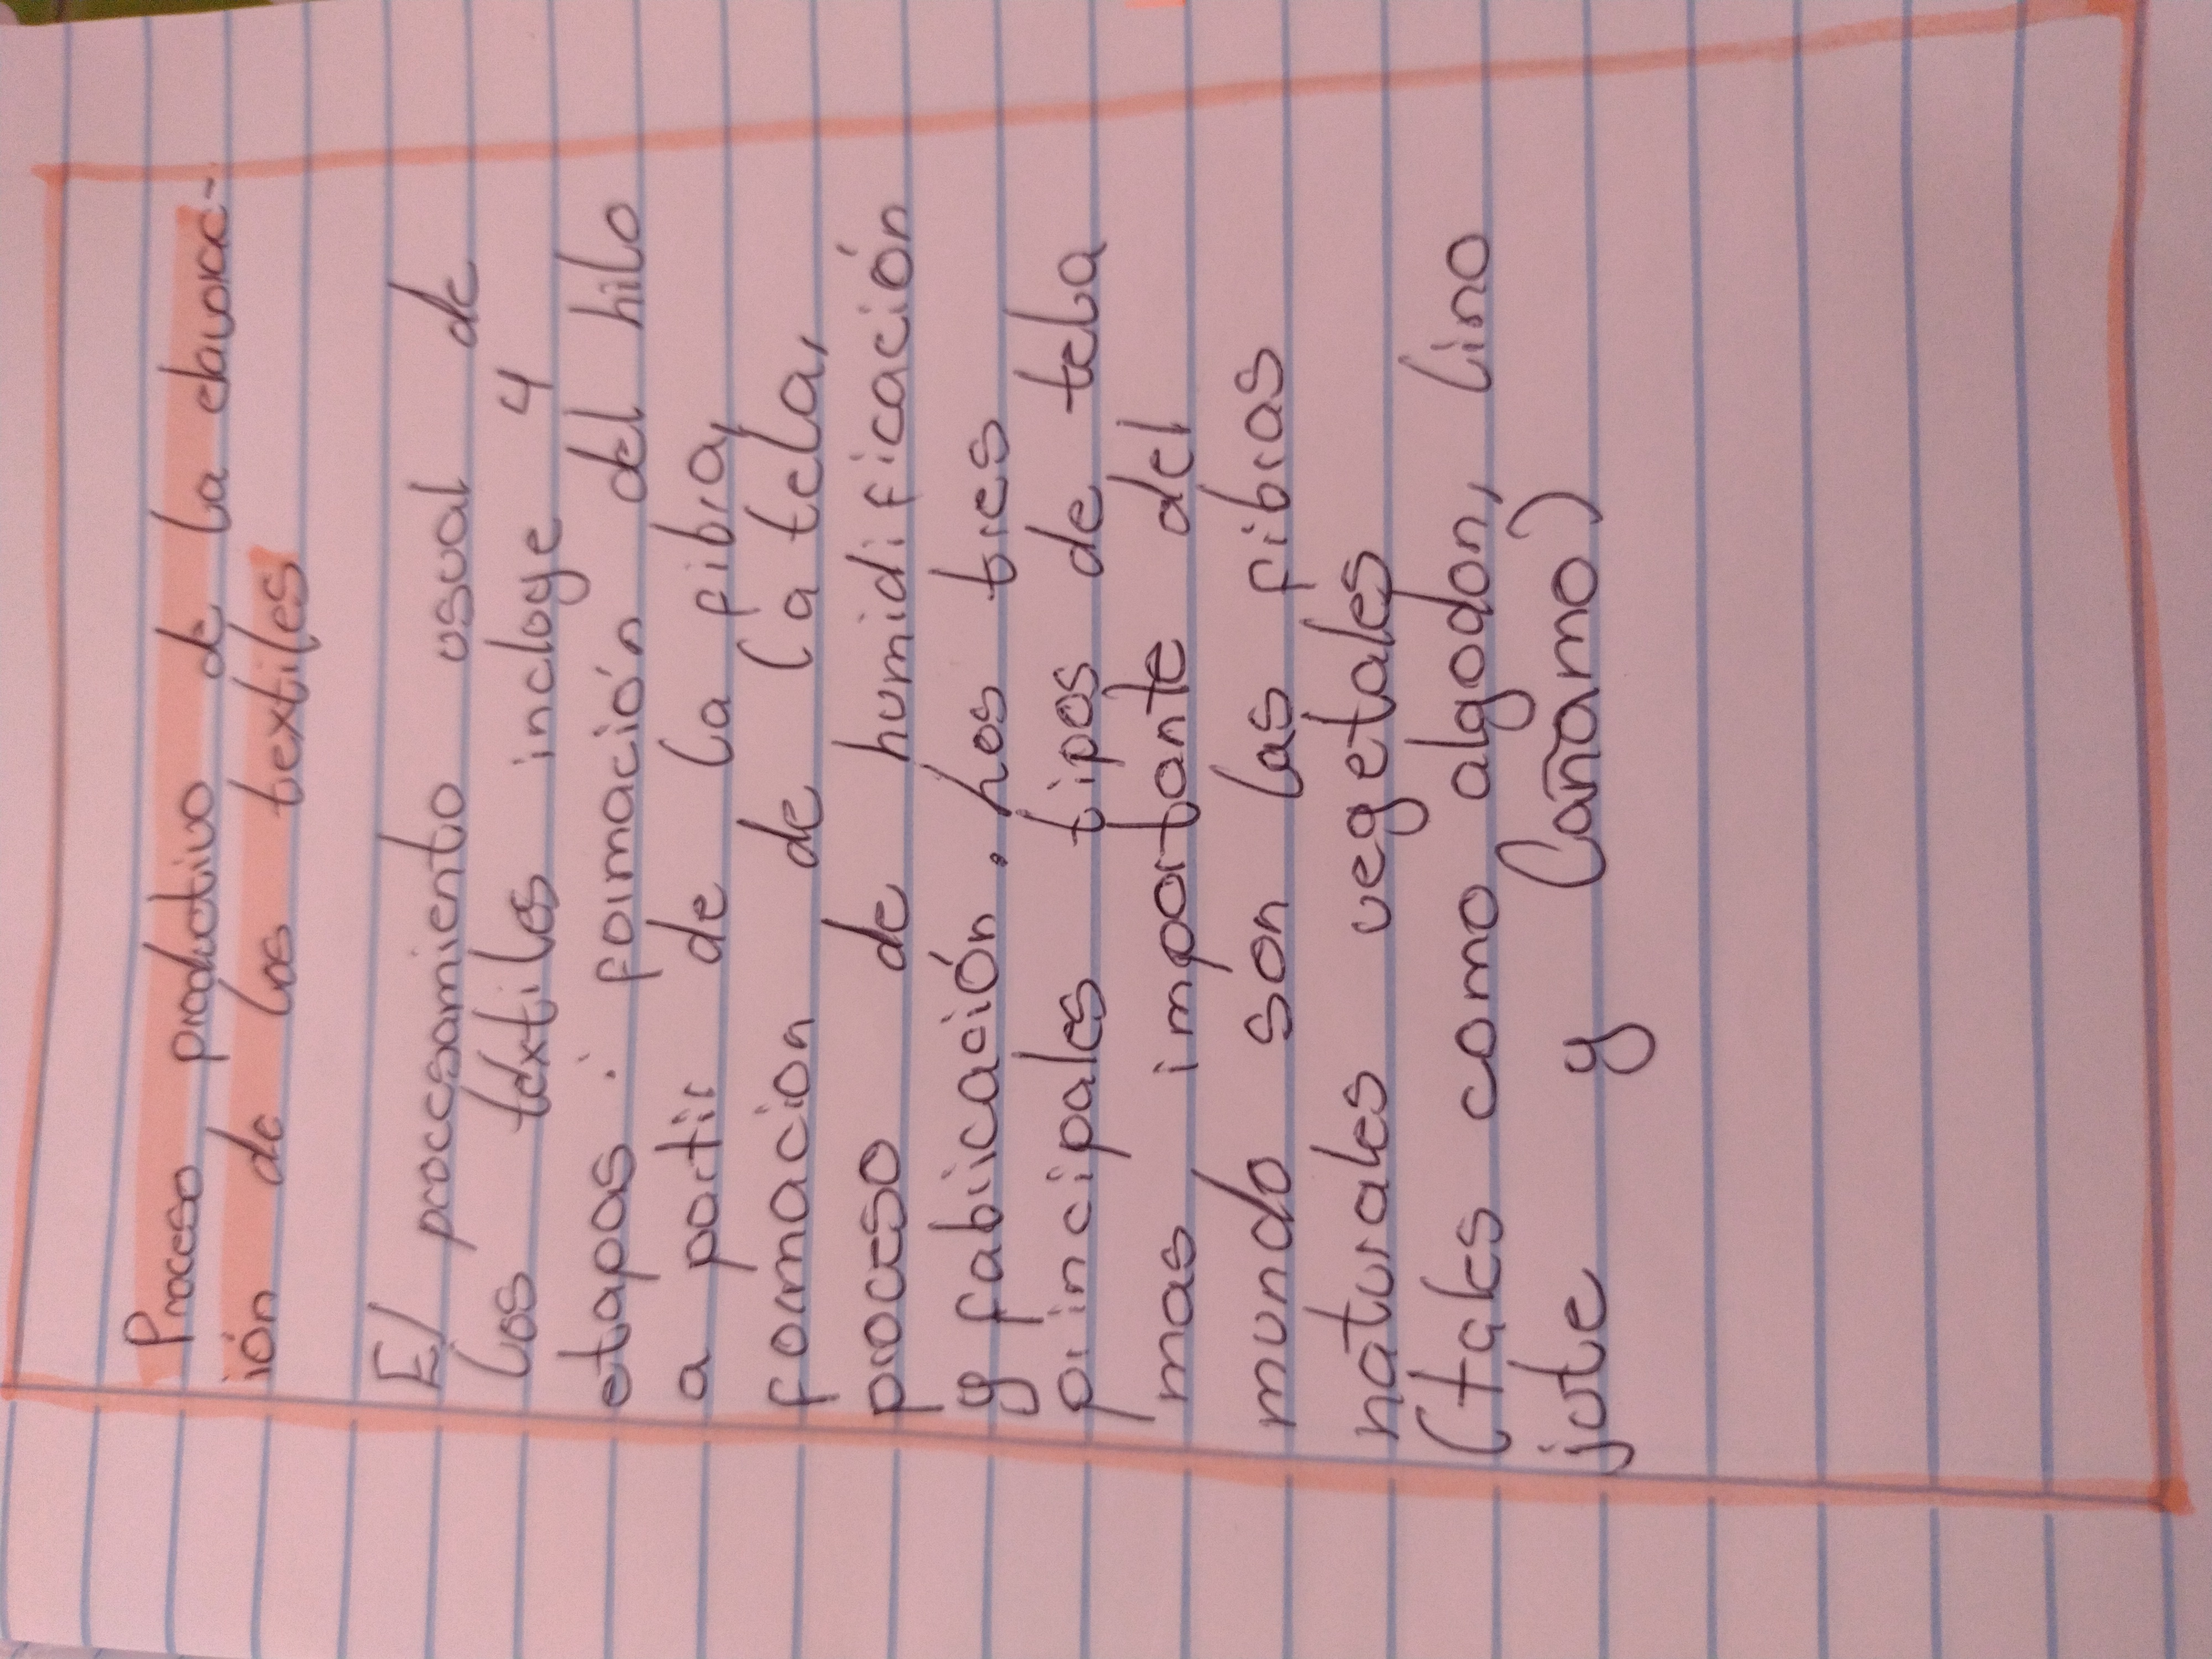 Proceso productivo de la elavorac-
ión de los textiles
El procesamiento usual de
los textiles incluye 4
etapas: formación del hilo
a partir de la fibra,
formacion de la tela,
proceso de humidificación
y fabricación. Los tres
principales tipos de tela
mas importante del
mundo son las fibras
naturales vegetales
(tales como algodon, lino
jute y Cañamo)